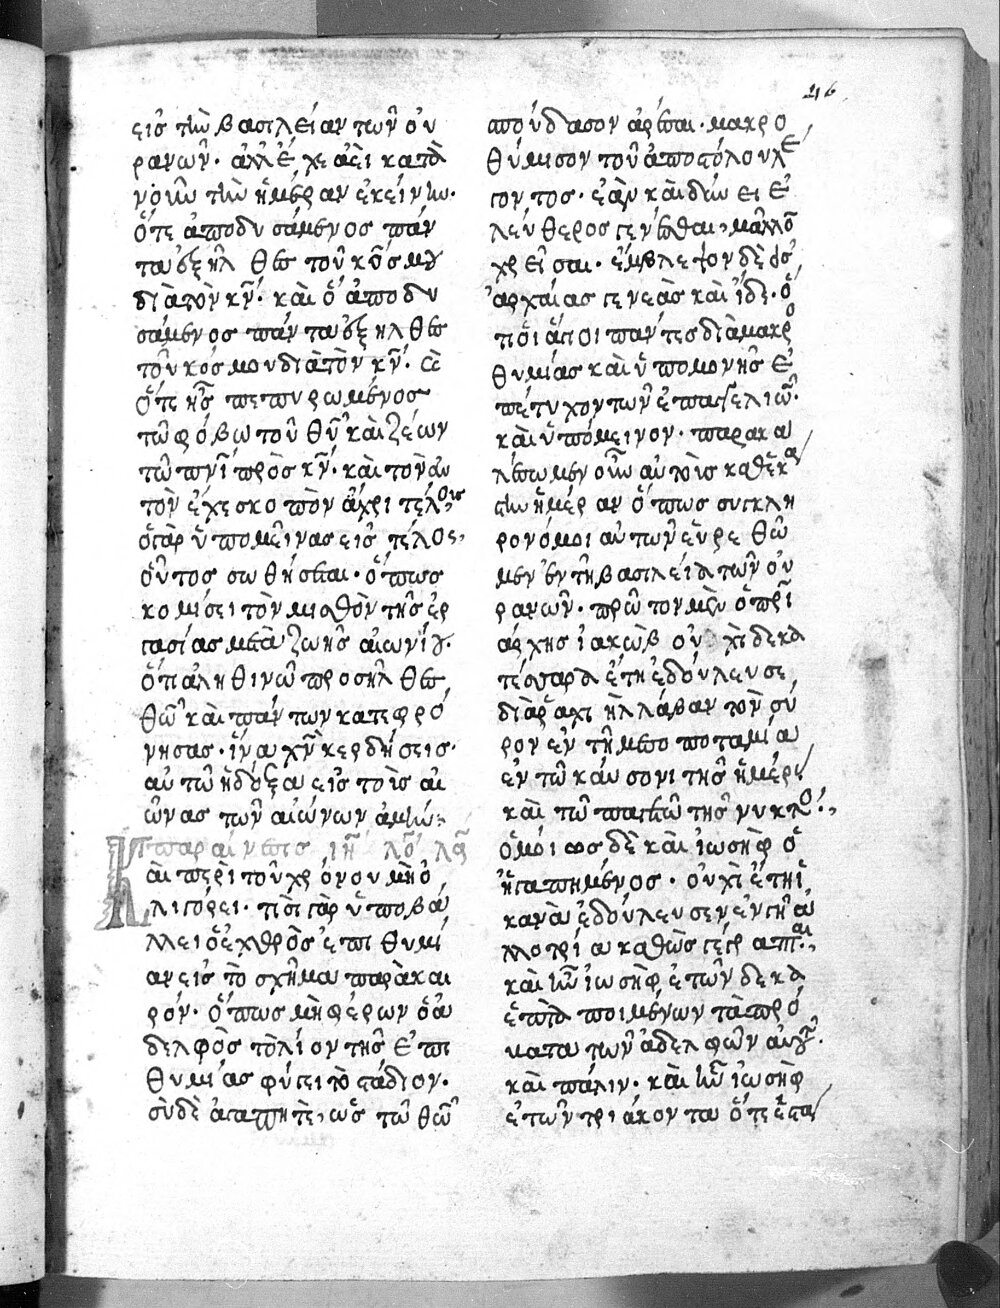 46
εἰσ τὴν βασιλείαν τῶν οὐ
ρανῶν. ἀλλ' ἔχε ἀεὶ κατὰ
νοῦν τὴν ἡμέραν ἐκείνην.
ὅτε ἀποδυσάμενος πάν
τα ἐξῆλθες τοῦ κόσμου
διὰ τὸν κν̄. καὶ ὁ ἀποδυ
σάμενος πάντα ἐξῆλθες
τοῦ κόσμου διὰ τὸν κν̄.
ὅτε ἦς πεπυρωμένος
τῷ φόβω τοῦ θῡ καὶ ζέων
τῶ πνῑ πρὸς κν̄. καὶ τὸν αὐ
τὸν ἔχε σκοπὸν ἄχρι τέλους
ὁ γὰρ ὑπομείνας εἰς τέλος,
οὗτος σωθήσεται. ὅπως
κομίσει τὸν μισθὸν τῆς ἐρ
γασίας μετὰ ζωῆς αἰωνίου.
ὅτι ἀληθινῶ προσῆλθες
θῶ καὶ πάντων κατεφρό
νησας. ἵνα χν̄ κερδήσεις.
αὐτῶ ἡ δόξα εἰς τοὶς αἰ
ῶνας τῶν αἰώνων ἀμήν:
παραίνεσις
Καὶ περὶ τοῦ χρόνου μὴ ὀ
λιγόρει. τί σοι γὰρ ὑποβά
λλει ὁ ἐχθρὸς ἐπιθυμί
αν εἰς τὸ σχῆμα παρὰ και
ρόν. ὅπως μὴ φέρων ὁ ἀ
δελφὸς τὸ λίον τῆς ἐπι
θυμίας φύγει τὸ στάδιον.
σὺ δὲ ἀγαπητὲ, ὡς τῶ θεῶ
σπούδασον ἀρέσαι. μακρο
θύμισον τοῦ ἀποστόλου λέ
γοντος. ἐὰν καὶ δύνῃ ἐλ
εύθερος γενέσθαι, μᾶλλον
χρεῖσαι. ἔμβλεψον δὲ εἰς
ἀρχαίας γενεὰς καὶ ἴδε. ὅ
τι οἱ ἅγιοι πάντες διὰ μακρο
θυμίας καὶ ὑπομονῆς ἐ
πέτυχον τῶν ἐπαγγελιῶν.
καὶ ὑπόμεινον. παρακα
λέσωμεν οὖν αὐτοὶς καθ' ἑκά
στην ἡμέραν ὅπως συγκλη
ρονόμοι αὐτῶν εὑρεθῶ
μεν ἐν τῆ βασιλεία τῶν οὐ
ρανῶν. πρῶτον μὲν ὁ πρῑ
άρχης ἰακὼβ οὐχὶ δεκα
τέσσαρα ἔτη ἐδούλευσε,
διὰ ῥαχὶλ λάβαν τὸν σύ
ρον ἐν τῆ μεσοποταμία
ἐν τῶ καύσονι τῆς ἡμέρας
καὶ τῶ παγετῶ τῆς νυκτός.
ὁμοίως δὲ καὶ ἰωσὴφ ὁ
ἠγαπημένος. οὐχὶ ἔτη ἱ
κανὰ ἐδούλευσεν ἐν γῆ ἀ
λλοτρία καθὼς γέγραπται,
καὶ ἦν ἰωσὴφ ἐτῶν δεκα
ἑπτὰ ποιμένων τὰ πρό
βατα τῶν ἀδελφῶν αὐτοῦ.
καὶ πάλιν. καὶ ἦν ἰωσὴφ
ἐτῶν τριάκοντα ὅτε ἔστη